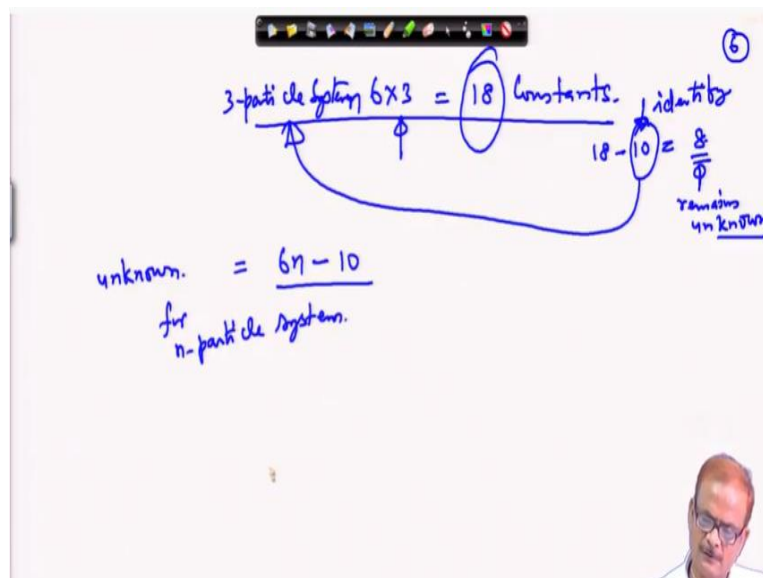 6
3-particle system 6×3 = 18 Constants.
identify
18 - 10 = 8
remains
unknown
unknown. = 6n - 10
for
n-particle system.